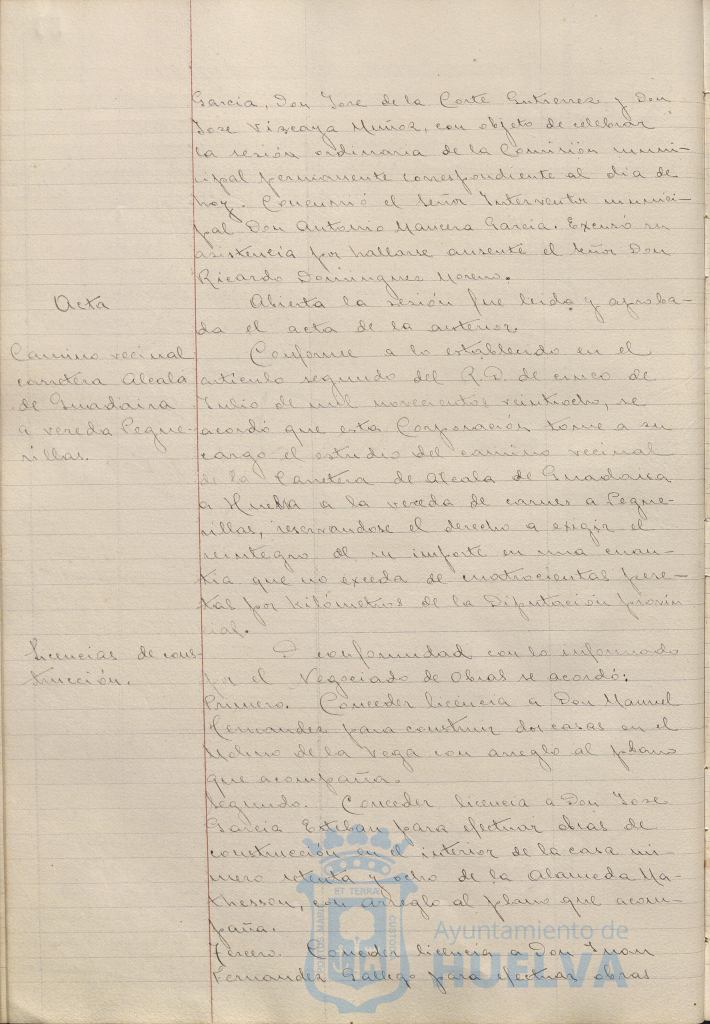 Garcia, Don Jose de la Corte Gutierrez y Don
Jose Vizcaya Muñoz, con objeto de celebrar
la sesión ordinaria de la Comisión muni-
cipal permanente correspondiente al dia de
hoy. Concurrió el Señor Interventor munici-
pal Don Antonio Mancera Garcia. Excusó su
asistencia por hallarse ausente el Señor Don
Ricardo Dominguez Moreno.
Acta
Abierta la sesión fue leida y aproba-
da el acta de la anterior.
Camino vecinal
carretera Alcalá
de Guadaira
a vereda Pegue-
rillas.
Conforme a lo establecido en el
articulo segundo del R.D. de cinco de
Julio de mil novecientos veintiocho, se
acordó que esta Corporación tome a su
cargo el estudio del camino vecinal
de la Carretera de Alcala de Guadaira
a Huelva a la vereda de carnes a Pegue-
rillas, reservandose el derecho a exigir el
reintegro de su importe en una cuan-
tia que no exceda de cuatrocientas pese-
tas por kilómetros de la Diputación provin-
cial.
Licencias de cons-
trucción.
D conformidad con lo informado
por el Negociado de Obras se acordó:
Primero. Conceder licencia a Don Manuel
Hernandez para construir dos casas en el
Molino de la Vega con arreglo al plano
que acompaña.
Segundo. Conceder licencia a Don Jose
Garcia Esteban para efectuar obras de
construcción en el interior de la casa nú-
mero setenta y ocho de la Alameda Ma-
thesson, con arreglo al plano que acom-
paña.
Tercero. Conceder licencia a Don Juan
Fernandez Gallego para efectuar obras
PORTUS MARIS ET TERRAE CUSTODIA
Ayuntamiento de
HUELVA